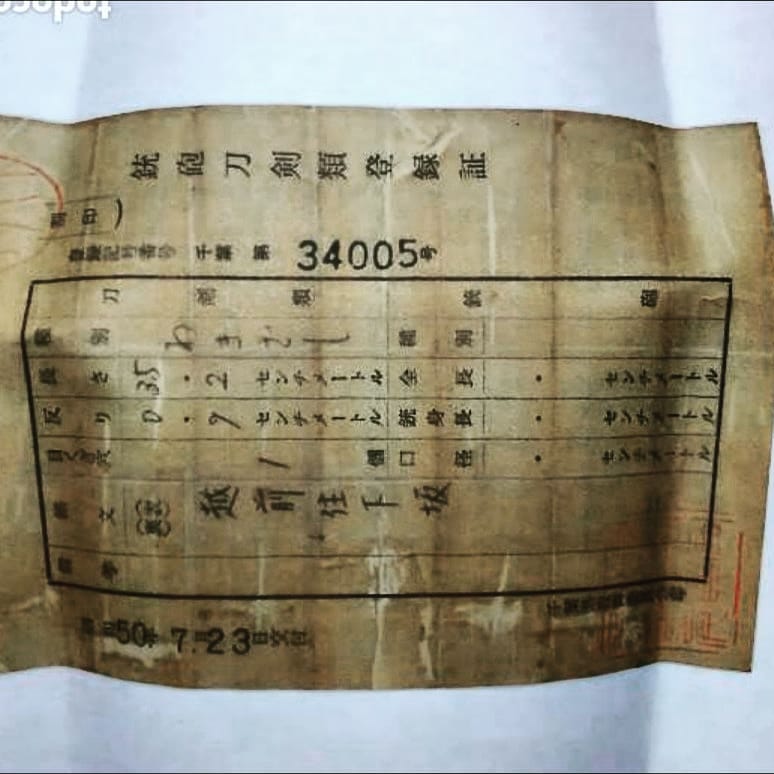 銃砲刀剣類登録証
登録記号番号 千葉 第 34005号
刀剣類 銃砲
種別 わきざし 種別
長さ 35.2 センチメートル 全長 . センチメートル
反り 0.9 センチメートル 銃身長 . センチメートル
目くぎ穴 1 個 口径 . センチメートル
銘文 (表)(裏) 越前住下坂
備考
昭和50年7月23日交付
千葉県教育委員会